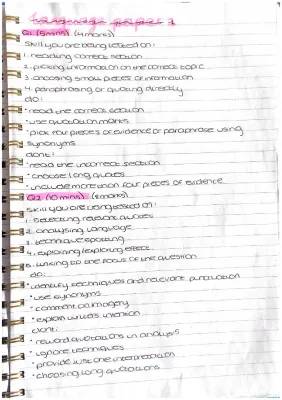 language paper 1
Q1 (5mins) (4marks)
Skill you are being tested on:
1. reading correct section
2. picking information on the correct topic
3. choosing small pieces of information
4. paraphrasing or quoting directly
do:
• read the correct section
• use quotation marks
• pick four pieces of evidence or paraphrase using
synonyms
dont:
• read the incorrect section
• choose long quotes
• include more than four pieces of evidence
Q2 (10 mins) (8marks)
Skill you are being tested on:
1. selecting relevant quotes
2. analysing language
3. technique spotting
4. explaining/exploring effect
5. linking to the focus of the question
do:
• identify techniques and relevant quotation
• use synonyms
• comment on imagery
• explain writers intention
dont:
• reword quotations in analysis
• ignore techniques
• provide just one interpretation
• choosing long quotations